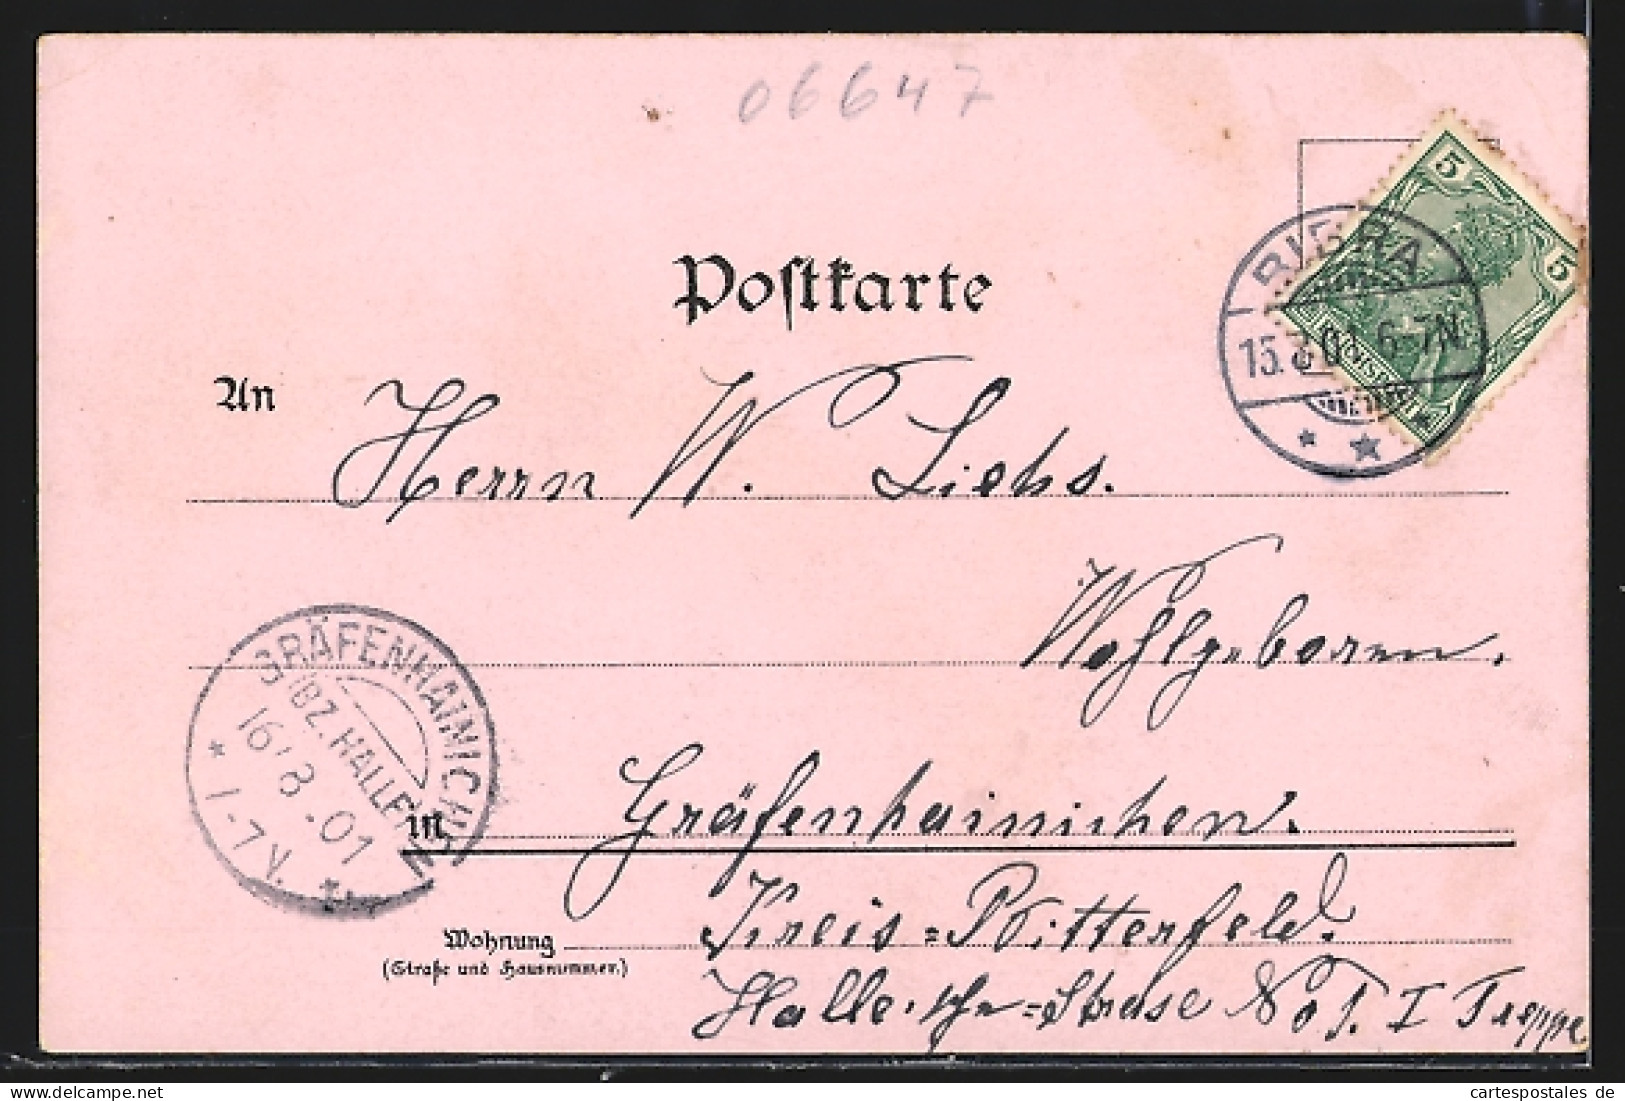 06647
Postkarte
5
5
BIBRA
15.8.01 6-7N.
An
Herrn W. Liehs.
Wohlgeboren.
GRÄFENHAINICHEN
(BZ. HALLE)
16 8.01
1-7V.
in Gräfenhainichen.
Kreis=Bitterfeld.
Wohnung
(Straße und Hausnummer.)
Halle.sche=Strase No 1. I Treppe
cartespostales de